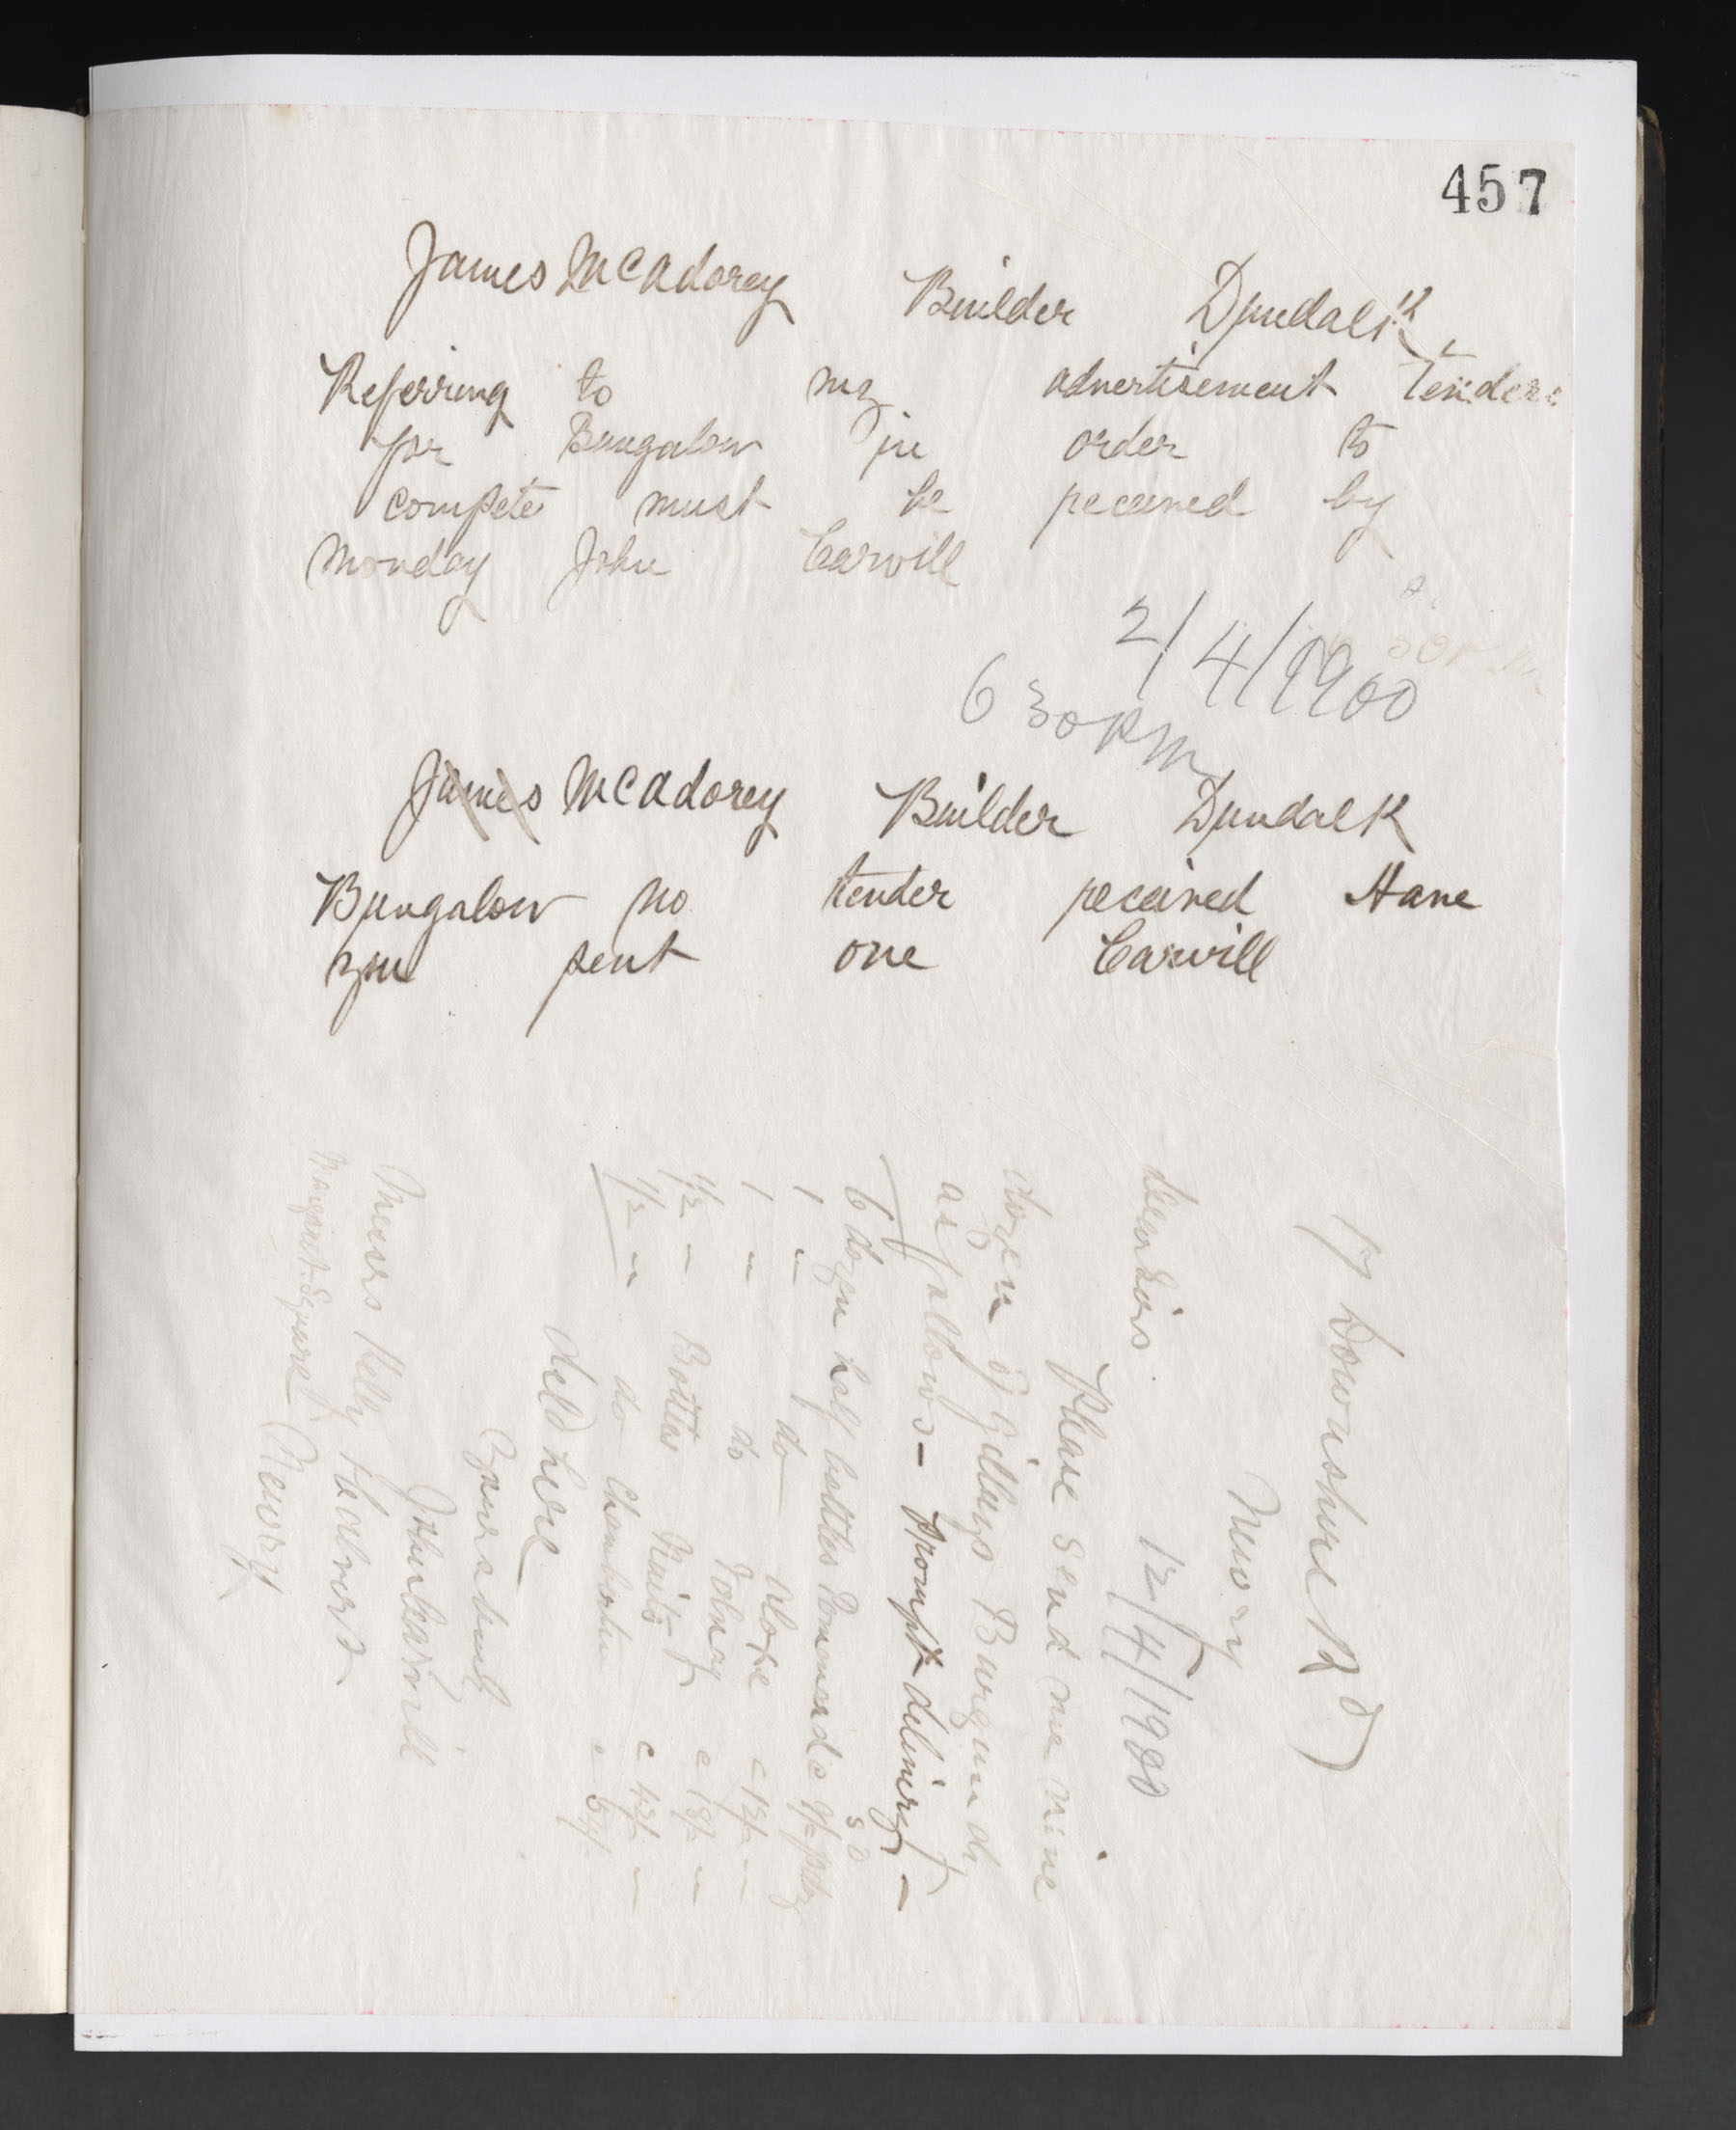 457
James McAdorey Builder Dundalk
Referring to my advertisement Tenders
for Bungalow in order to
compete must be received by
Monday John Carvill
2/4/1900
6 30 PM
James McAdorey Builder Dundalk
Bungalow no tender received Have
you sent one Carvill
17 Downshire Rd
Newry
12/4/1900
Dear Sirs
Please send me nine
dozen of Gilbeys Burgundy
as follows - Prompt delivery -
6 dozen half bottles Pommard c
1 " do
1 " do Volnay c 18/- "
1/2 " Bottles Nuits c 42/- "
1/2 " do Chambertin c 54/-
deld here
Yours truly
John Carvill
Messrs Kelly
Margaret Square Newry